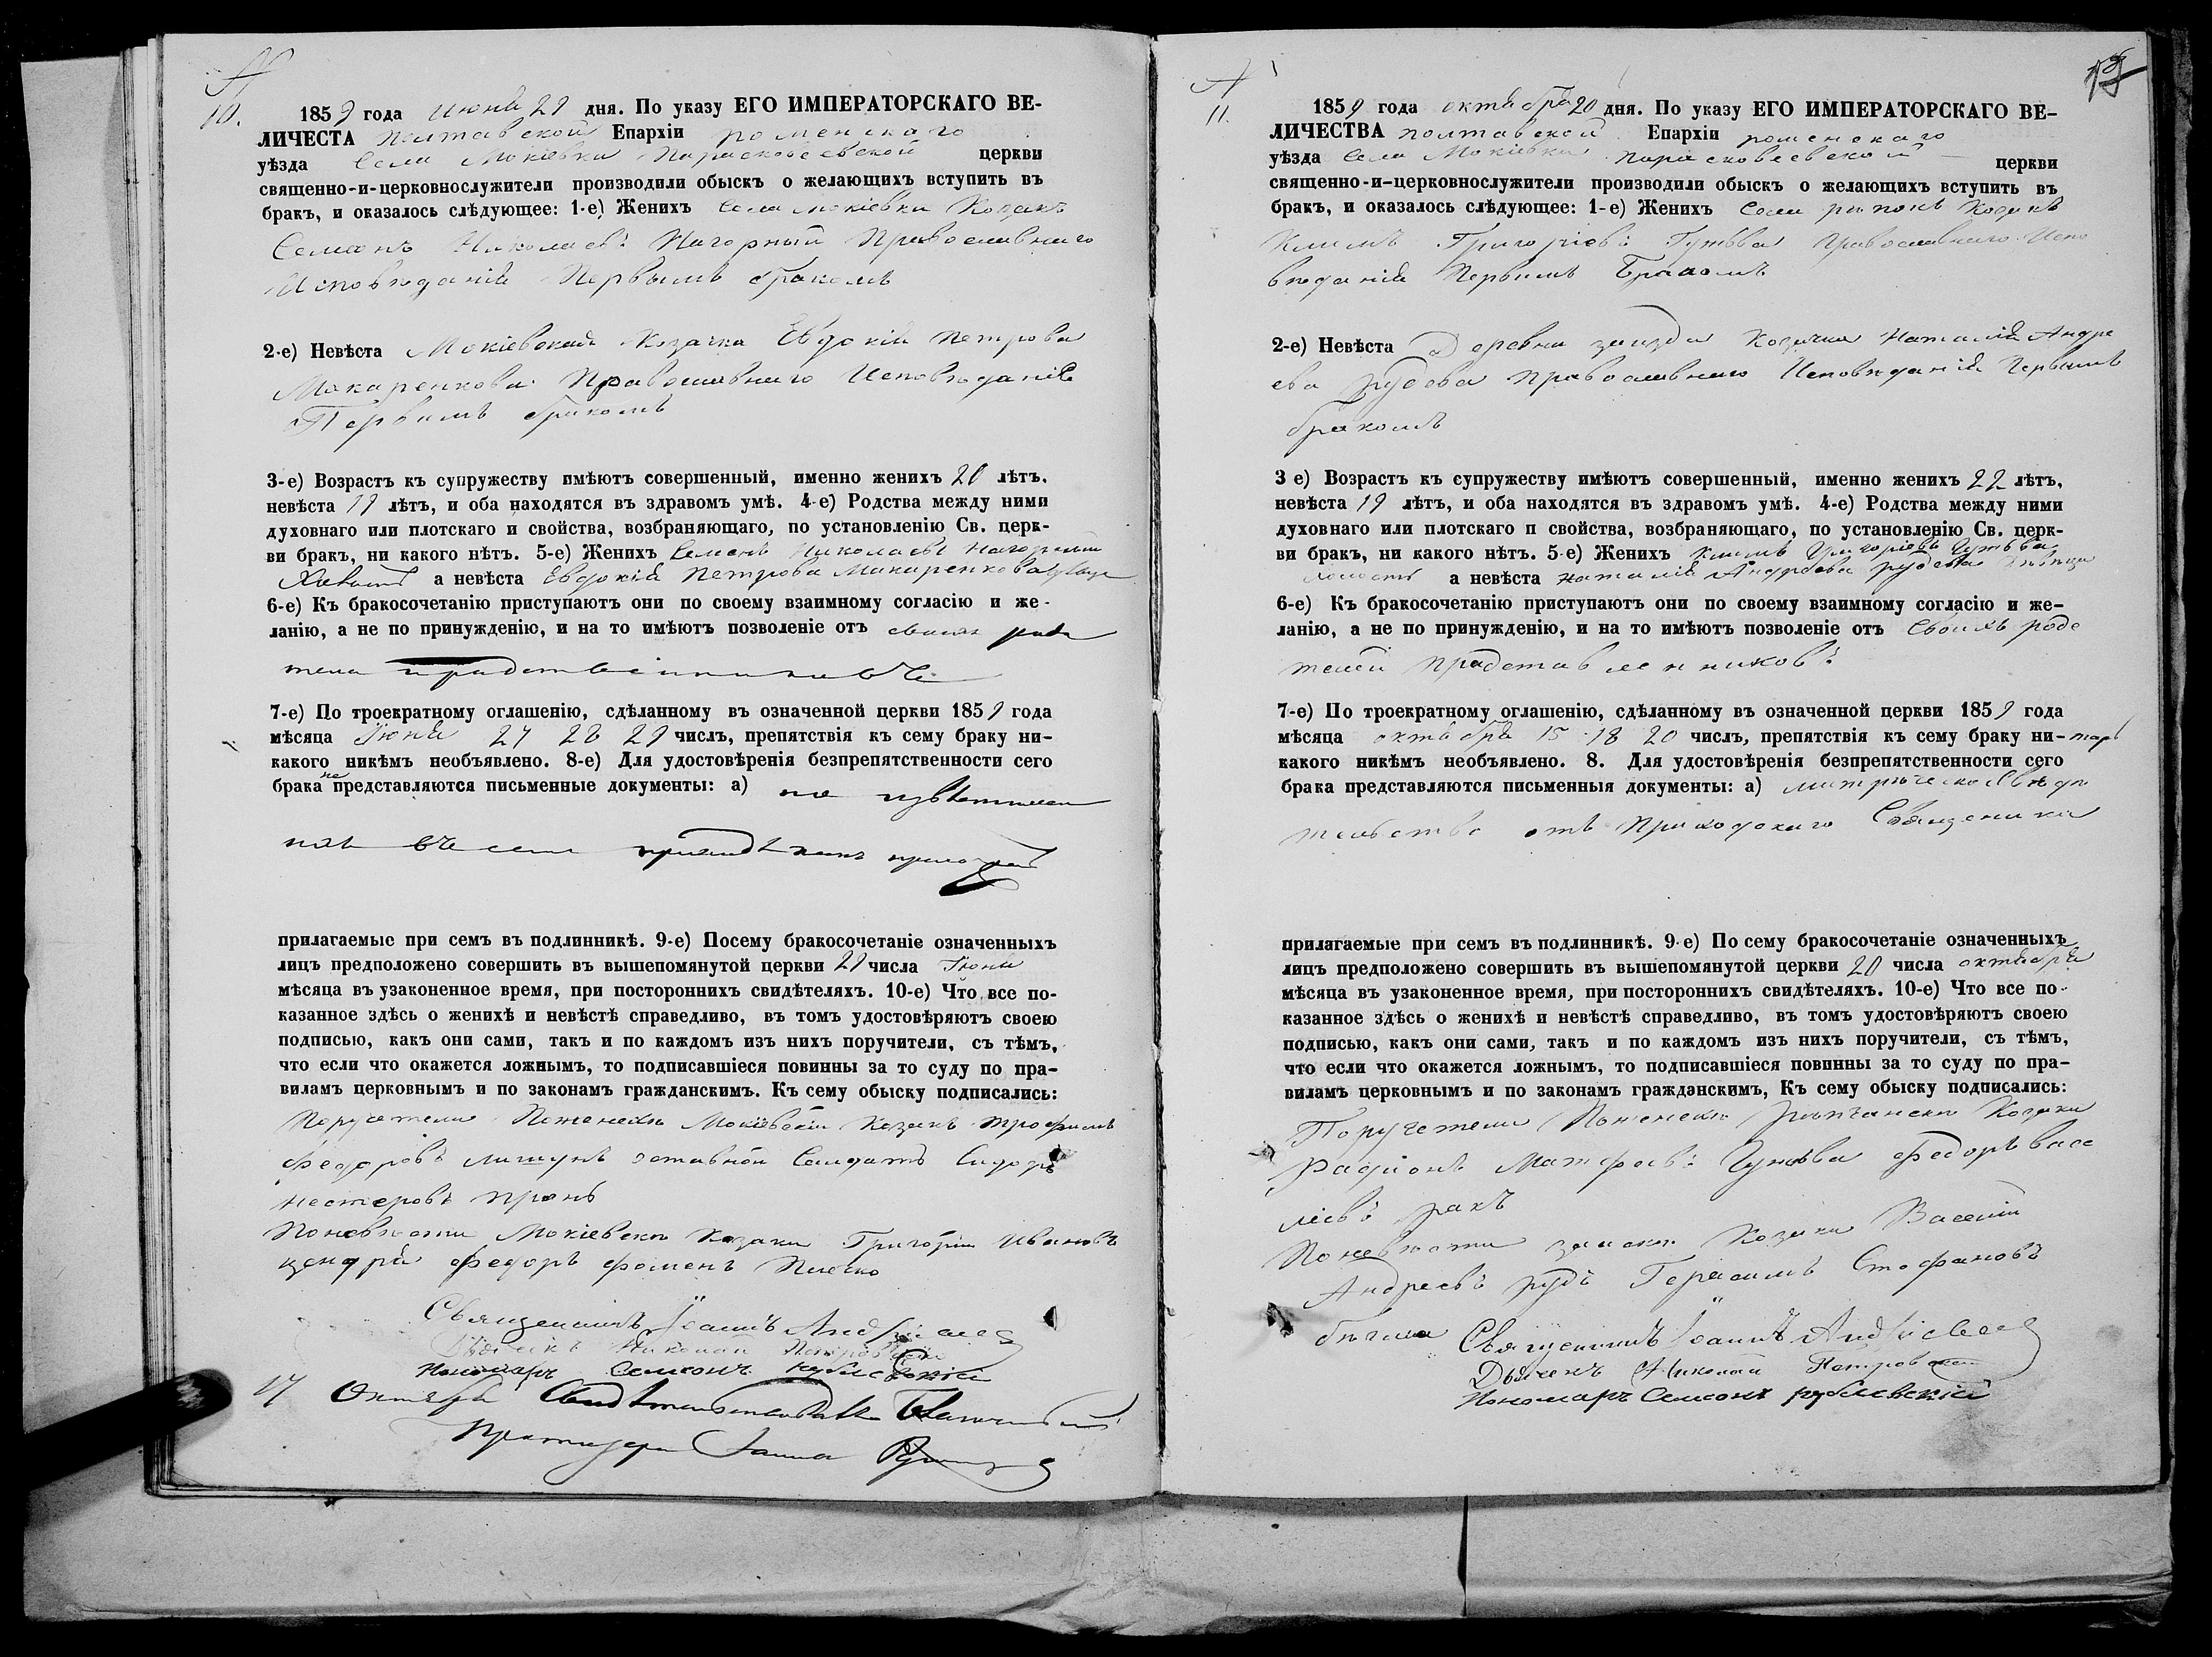 10.
1859 года Июня 29 дня. По указу ЕГО ИМПЕРАТОРСКАГО ВЕ-
ЛИЧЕСТА Полтавской Епархіи роменскаго
уѣзда Села Мокіевки Парасковеевской церкви
священно-и-церковнослужители производили обыскъ о желающихъ вступить въ
бракъ, и оказалось слѣдующее: 1-е) Женихъ Села мокіевки Козакъ
Семенъ Николаевъ Нагорный Православнаго
Исповѣданія Первымъ бракомъ
2-е) Невѣста Мокіевская Козачка Евдокія петрова
Макаренкова Православнаго Исповѣданія
Первымъ бракомъ
3-е) Возрастъ къ супружеству имѣютъ совершенный, именно женихъ 20 лѣтъ.
невѣста 19 лѣтъ, и оба находятся въ здравомъ умѣ. 4-е) Родства между ними
духовнаго или плотскаго и свойства, возбраняющаго, по установленію Св. церк-
ви бракъ, ни какого нѣтъ. 5-е) Женихъ Семенъ Николаевъ Нагорный
а невѣста Евдокія Петрова Макаренкова
6-е) Къ бракосочетанію приступаютъ они по своему взаимному согласію и же-
ланію, а не по принужденію, и на то имѣютъ позволеніе отъ своихъ роди
7-е) По троекратному оглашенію, сдѣланному въ означенной церкви 1859 года
мѣсяца Іюня 27 28 29 числъ, препятствія къ сему браку ни-
какого никѣмъ необъявлено. 8-е) Для удостовѣренія безпрепятственности сего
брака не представляются письменные документы: а) по
прилагаемые при семъ въ подлинникѣ. 9-е) Посему бракосочетаніе означенныхъ
лицъ предположено совершить въ вышепомянутой церкви 29 числа Іюня
мѣсяца въ узаконенное время, при постороннихъ свидѣтеляхъ. 10-е) Что все по-
казанное здѣсь о женихѣ и невѣстѣ справедливо, въ томъ удостовѣряютъ своею
подписью, какъ они сами, такъ и по каждомъ изъ нихъ поручители, съ тѣмъ,
что если что окажется ложнымъ, то подписавшіеся повинны за то суду по пра-
виламъ церковнымъ и по законамъ гражданскимъ. Къ сему обыску подписались:
Поручители Поженихъ Мокіевскій Козакъ трофимъ
Федоровъ лишунъ Солдатъ Сидоръ
нестеровъ пронь
Поневѣсти Мокіевски Козаки Григорій Ивановъ
Федоръ
Священникъ Іоаннъ Андріевъ
Николай Петровскій
Пономаръ Семеонъ рублевскій
17 Октября
11.
1859 года октября 20 дня. По указу ЕГО ИМПЕРАТОРСКАГО ВЕ-
ЛИЧЕСТВА полтавской Епархіи роменскаго
уѣзда Села Мокіевки парасковеевской церкви
священно-и-церковнослужители производили обыскъ о желающихъ вступить въ
бракъ, и оказалось слѣдующее: 1-е) Женихъ Села рипокъ Козакъ
Климъ Григоріевъ Гутьва Православнаго Испо
вѣданія Первымъ Бракомъ
2-е) Невѣста Деревни заизда Козачка Наталія Андре
ева рудева православнаго Исповѣданія Первымъ
бракомъ
3 е) Возрастъ къ супружеству имѣютъ совершенный, именно женихъ 22 лѣтъ,
невѣста 19 лѣтъ, и оба находятся въ здравомъ умѣ. 4-е) Родства между ними
духовнаго или плотскаго п свойства, возбраняющаго, по установленію Св. церк-
ви бракъ, ни какого нѣтъ. 5-е) Женихъ Климъ Григоріевъ Гутьва
холостъ а невѣста наталія Андреева рудева дѣвица
6-е) Къ бракосочетанію приступаютъ они по своему взаимному согласію и же-
ланію, а не по принужденію, и на то имѣютъ позволеніе отъ Своихъ роде
телей
7-е) По троекратному оглашенію, сдѣланному въ означенной церкви 1859 года
мѣсяца октября 15 18 20 числъ, препятствія къ сему браку ни-
какого никѣмъ необъявлено. 8. Для удостовѣренія безпрепятственности сего
брака представляются письменныя документы: а) метрическо Свѣде
тельство отъ Приходскаго Священика
прилагаемые при семъ въ подлинникѣ. 9-е) По сему бракосочетаніе означенныхъ
лицъ предположено совершить въ вышепомянутой церкви 20 числа октября
мѣсяца въ узаконенное время, при постороннихъ свидѣтеляхъ. 10-е) Что все по-
казанное здѣсь о женихѣ и невѣстѣ справедливо, въ томъ удостовѣряютъ своею
подписью, какъ они сами, такъ и по каждомъ изъ нихъ поручители, съ тѣмъ,
что если что окажется ложнымъ, то подписавшіеся повинны за то суду по пра-
виламъ церковнымъ и по законамъ гражданскимъ, Къ сему обыску подписались:
Поручетели Поженихѣ Козаки
Радіонъ Матфеевъ Гутьва Федоръ васе
ліевъ ракъ
Поневѣсти Козаки Василій
Андреевъ рудь Герасимъ Стефановъ
Священникъ Іоаннъ Андріевъ
Дьячекъ Николай Петровскій
Пономаръ Семеонъ рублевскій